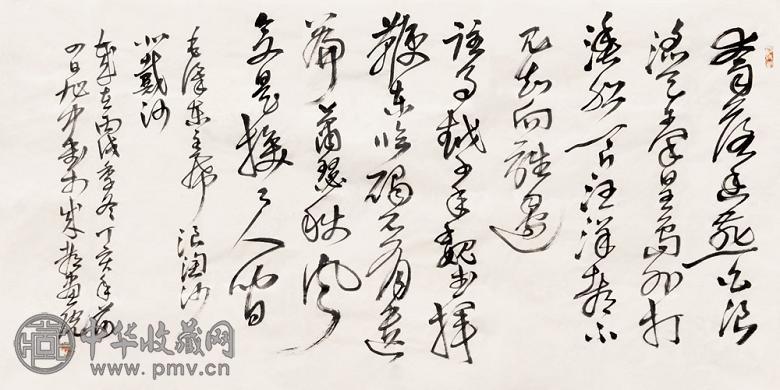 大雨落幽燕白浪
滔天秦皇島外打
漁船一片汪洋都不
見知向誰邊
往事越千年魏武揮
鞭東臨碣石有遺
篇蕭瑟秋風
今又是換了人間
毛澤東主席 浪淘沙
北戴河
歲在丙戌季冬丁亥年前
中华收藏网
www.pmv.cn